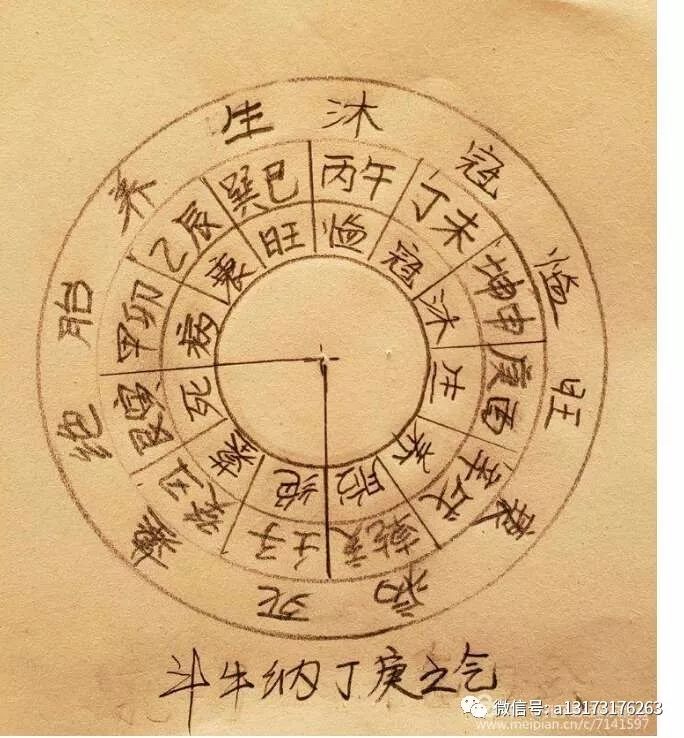 生 沐 冠 临 旺 衰 病 死 墓 绝 胎 养
巽巳 丙午 丁未 坤申 庚酉 辛戌 乾亥 壬子 癸丑 艮寅 甲卯 乙辰
旺 临 冠 沐 生 养 胎 绝 墓 死 病 衰
斗牛纳丁庚之气
微信号: a13173176263
www.meipian.cn/c/7141597